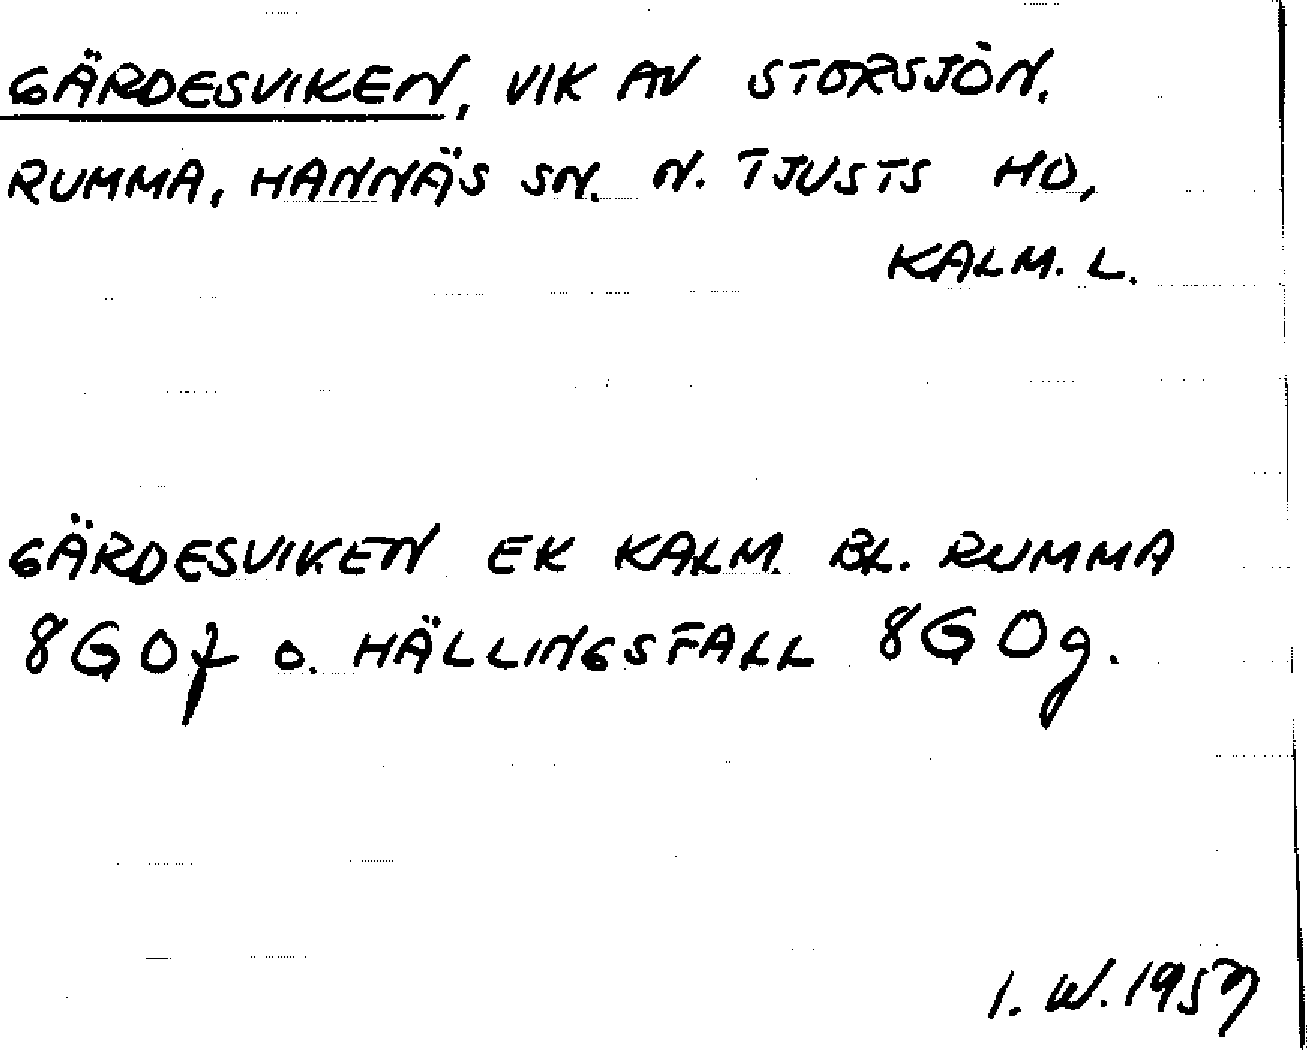 GÄRDESVIKEN, VIK AV STORSJÖN.
RUMMA, HANNÄS SN. N. TJUSTS HD,
KALM. L.
GÄRDESVIKEN EK KALM. BL. RUMMA
8G0f o. HÄLLINGSFALL 8G0g.
I. W. 1957